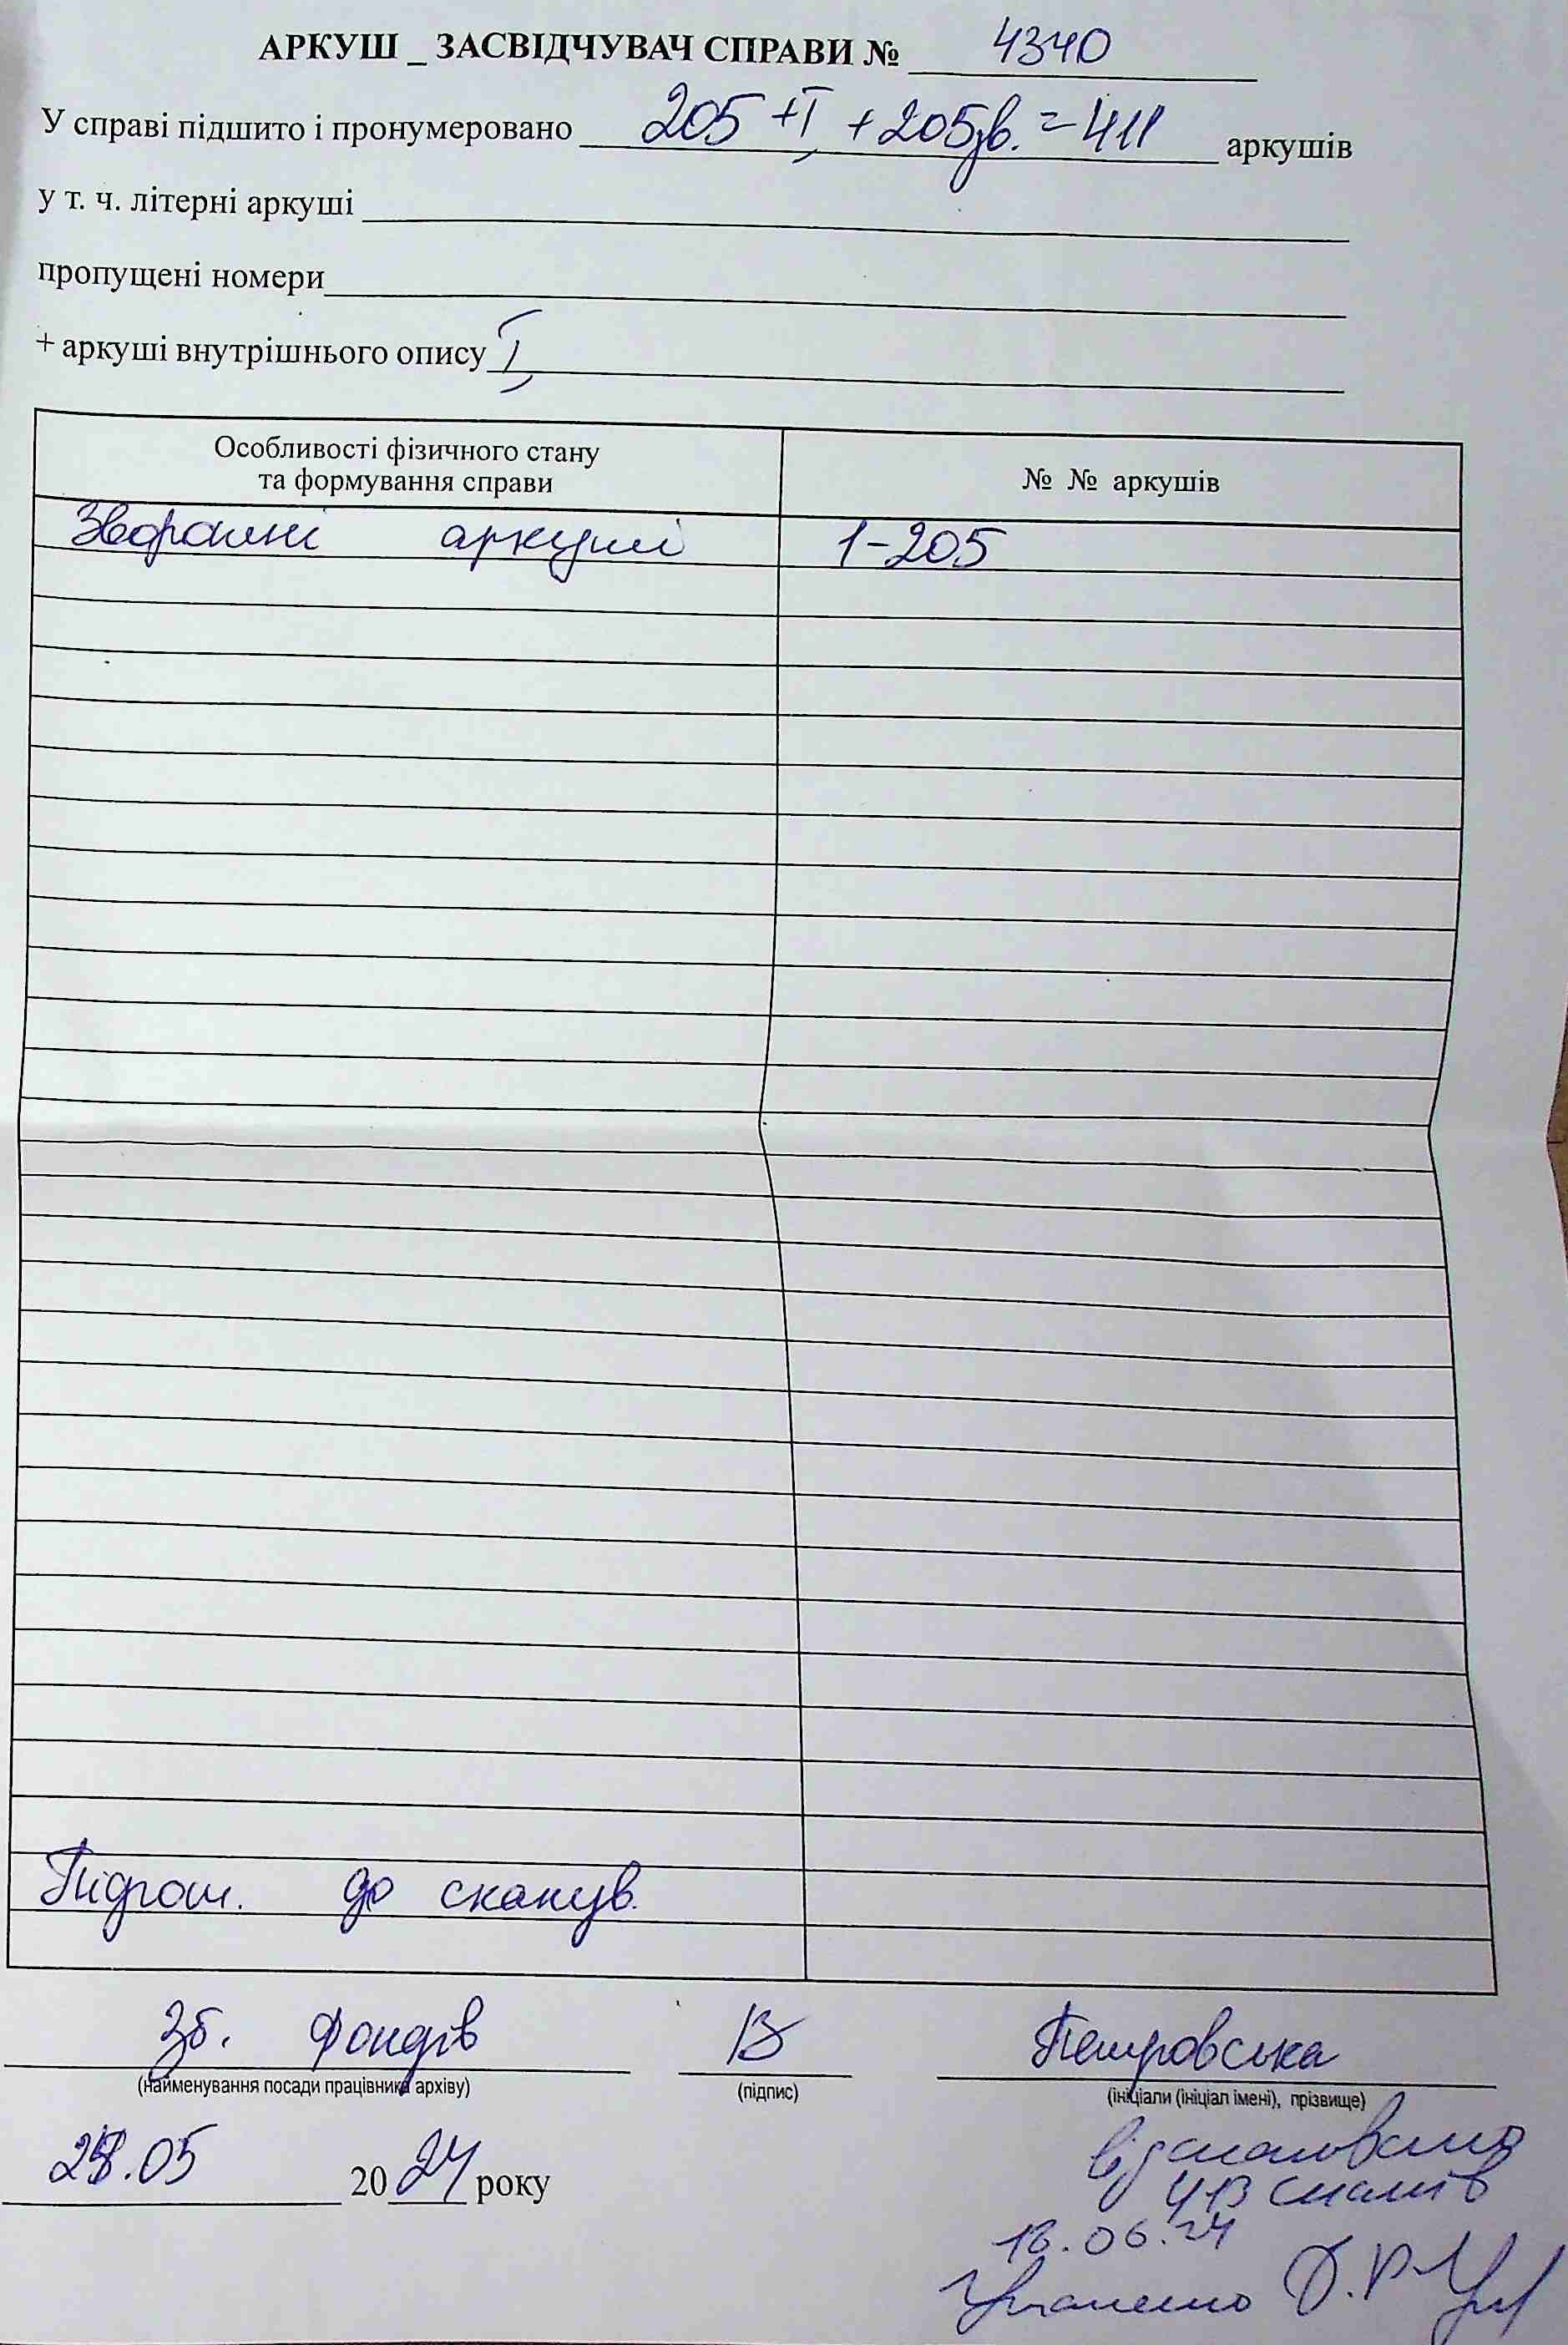 АРКУШ _ ЗАСВІДЧУВАЧ СПРАВИ № 4340
У справі підшито і пронумеровано 205 + I + 205зв. = 411 аркушів
у т. ч. літерні аркуші
пропущені номери
+ аркуші внутрішнього опису I
Особливості фізичного стану
та формування справи
№ № аркушів
Зворотні аркуші 1-205
Підгот. до сканув.
Зб. Фондів
Петровська
(найменування посади працівника архіву) (підпис) (ініціали (ініціал імені), прізвище)
28.05 2024 року
відскановано
413 сканів
18.06.24